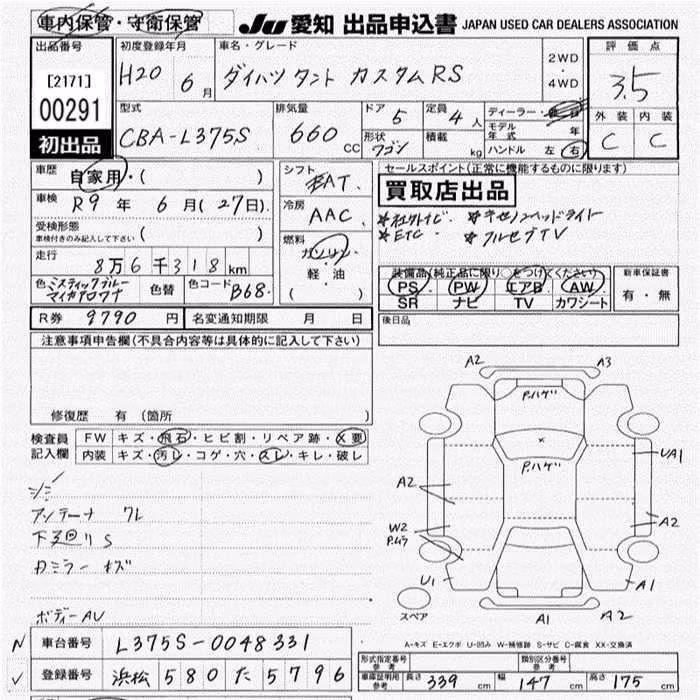 車内保管・守衛保管
JU 愛知 出品申込書 JAPAN USED CAR DEALERS ASSOCIATION
出品番号
[2171]
00291
初出品
初度登録年月
H20 6月
車名・グレード
ダイハツ タント カスタムRS
2WD
・
4WD
評価点
3.5
外装 内装
C C
型式
CBA-L375S
排気量
660 CC
ドア 5
形状 ワゴン
定員 4人
積載 kg
ディーラー・
モデル年式 年
ハンドル 左 右
車歴 自家用・( )
車検 R9年 6月(27日)
受検形態
車検付きのみ記入して下さい ( )
走行 8万6千318km
色 ミスティックブルーマイカアロワナ 色替 色コード B68
シフト AT
冷房 AAC
燃料
ガソリン
・
軽・油
( )
セールスポイント(正常に機能するものに限ります)
買取店出品
*社外ナビ *キセノンヘッドライト
*ETC *フルセグTV
装備品(純正品に限り○をつけてください)
PS PW エアB AW
SR ナビ TV カワシート
新車保証書
有・無
R券 9790円 名変通知期限 月 日
後日品
注意事項申告欄(不具合内容等は具体的に記入して下さい)
修復歴 有 (箇所 )
検査員
記入欄
FW キズ・飛石・ヒビ割・リペア跡・X要
内装 キズ・汚レ・コゲ・穴・スレ・キレ・破レ
シミ
アンテナ ワレ
下廻りS
Dミラー キズ
ボディーAU
A2 A3
P.ハゲ
P.ハゲ
UA1
A2
A2
W2
P.ムラ
U1
A1
A1 A2
スペア
A-キズ E-エクボ U-凹み W-補修跡 S-サビ C-腐食 XX-交換済
N 車台番号 L375S-0048331
✓ 登録番号 浜松 580 た 5796
形式指定番号
参考
類別区分番号
参考
車庫証明用
参考
長さ 339 cm 幅 147 cm 高さ 175 cm